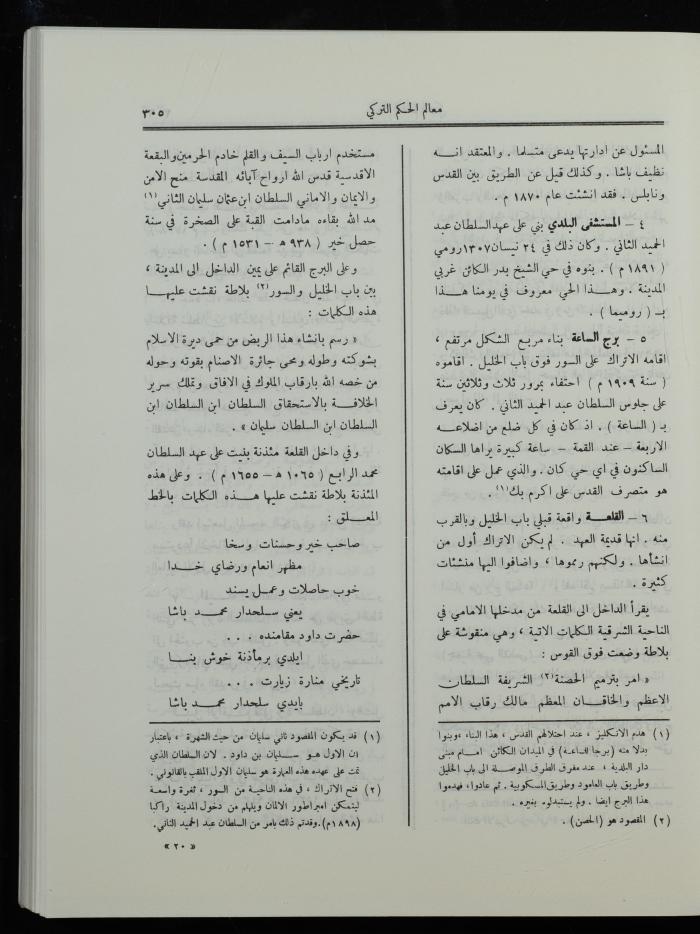 معالم الحكم التركي
٣٠٥
المسئول عن ادارتها يدعى متسلما . والمعتقد انه
نظيف باشا . وكذلك قيل عن الطريق بين القدس
ونابلس . فقد انشئت عام ١٨٧٠ م .
٤ – المستشفى البلدي بني على عهد السلطان عبد
الحميد الثاني . وكان ذلك في ٢٤ نيسان ١٣٠٧ رومي
( ١٨٩١ م ) . بنوه في حي الشيخ بدر الكائن غربي
المدينة . وهذا الحي معروف في يومنا هذا
بـ ( روميما ) .
٥ – برج الساعة بناء مربع الشكل مرتفع ،
اقامه الاتراك على السور فوق باب الخليل . اقاموه
( سنة ١٩٠٩ م ) احتفاء بمرور ثلاث وثلاثين سنة
على جلوس السلطان عبد الحميد الثاني . كان يعرف
بـ ( الساعة ) . اذ كان في كل ضلع من اضلاعه
الاربعة – عند القمة – ساعة كبيرة يراها السكان
الساكنون في اي حي كان . والذي عمل على اقامته
هو متصرف القدس علي اكرم بك(١) .
٦ – القلعة واقعة قبلي باب الخليل وبالقرب
منه . انها قديمة العهد . لم يكن الاتراك أول من
انشأها . ولكنهم رمموها ، واضافوا اليها منشئات
كثيرة .
يقرأ الداخل الى القلعة من مدخلها الامامي في
الناحية الشرقية الكلمات الاتية ، وهي منقوشة على
بلاطة وضعت فوق القوس :
« امر بترميم الحصنة(٢) الشريفة السلطان
الاعظم والخاقان المعظم مالك رقاب الامم
(١) هدم الانكليز ، عند احتلالهم القدس ، هذا البناء ، وبنوا
بدلا منه (برجا للساعة) في الميدان الكائن امام مبنى
دار البلدية ، عند مفرق الطرق الموصلة الى باب الخليل
وطريق باب العامود وطريق المسكوبية . ثم عادوا، فهدموا
هذا البرج ايضا . ولم يستبدلوه بغيره .
(٢) المقصود هو (الحصن) .
مستخدم ارباب السيف والقلم خادم الحرمين والبقعة
الاقدسية قدس الله ارواح آبائه المقدسة منح الامن
والايمان والاماني السلطان ابن عثمان سليمان الثاني(١)
مد الله بقاءه مادامت القبة على الصخرة في سنة
حصل خير ( ٩٣٨ هـ – ١٥٣١ م ) .
وعلى البرج القائم على يمين الداخل الى المدينة ،
بين باب الخليل والسور(٢) بلاطة نقشت عليها
هذه الكلمات :
« رسم بانشاء هذا الربض من حمى ديرة الاسلام
بشوكته وطوله ومحى جائرة الاصنام بقوته وحوله
من خصه الله بارقاب الملوك في الافاق وتملك سرير
الخلافة بالاستحقاق السلطان ابن السلطان ابن
السلطان ابن السلطان سليمان » .
وفي داخل القلعة مئذنة بنيت على عهد السلطان
محمد الرابع ( ١٠٦٥ هـ – ١٦٥٥ م ) . وعلى هذه
المئذنة بلاطة نقشت عليها هذه الكلمات بالخط
المعلق :
صاحب خير وحسنات وسخا
مظهر انعام ورضاي خدا
خوب حاصلات وعمل يسند
يعني سلحدار محمد باشا
حضرت داود مقامنده . . .
ايلدي برمأذنة خوش بنا
تاريخي منارة زيارت . . .
بايدي سلحدار محمد باشا
(١) قد يكون المقصود ثاني سليمان من حيث الشهرة ، باعتبار
ان الاول هو سليمان بن داود . لان السلطان الذي
تمت على عهده هذه العمارة هو سليمان الاول الملقب بالقانوني .
(٢) فتح الاتراك ، في هذه الناحية من السور ، ثغرة واسعة
ليتمكن امبراطور الالمان ويلهلم من دخول المدينة راكبا
(١٨٩٨م). وقد تم ذلك بامر من السلطان عبد الحميد الثاني.
« ٢٠ »